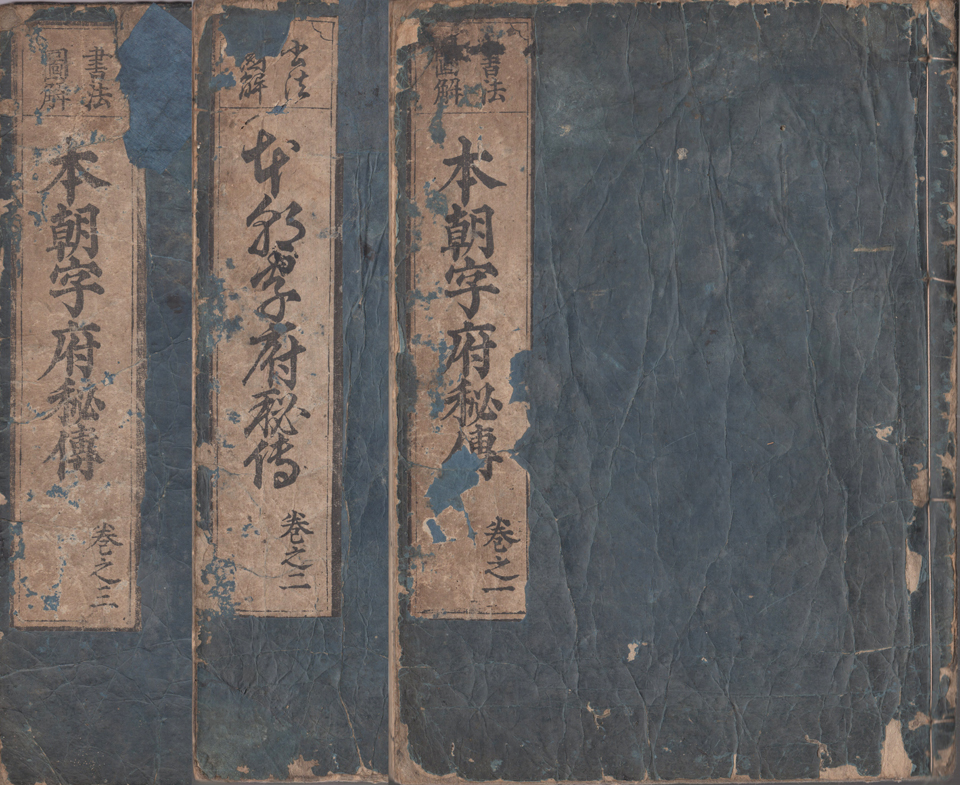 書法
圖解
本朝字府秘傳
卷之一
書法
圖解
本朝字府秘傳
卷之二
書法
圖解
本朝字府秘傳
卷之三